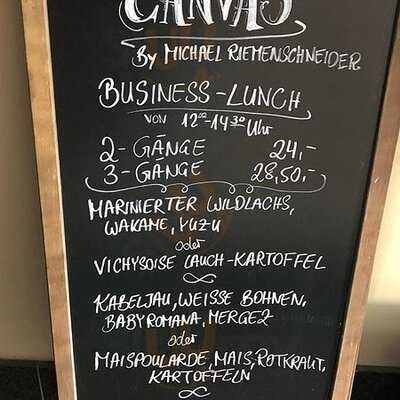 CANVAS
By MICHAEL RIEMENSCHNEIDER
BUSINESS-LUNCH
VON 12⁰⁰-14³⁰ Uhr
2-GÄNGE 24,-
3-GÄNGE 28,50,-
MARINIERTER WILDLACHS,
WAKAME, YUZU
oder
VICHYSOISE LAUCH-KARTOFFEL
KABELJAU, WEISSE BOHNEN,
BABYROMANA, MERGEZ
oder
MAISPOULARDE, MAIS, ROTKRAUT,
KARTOFFELN